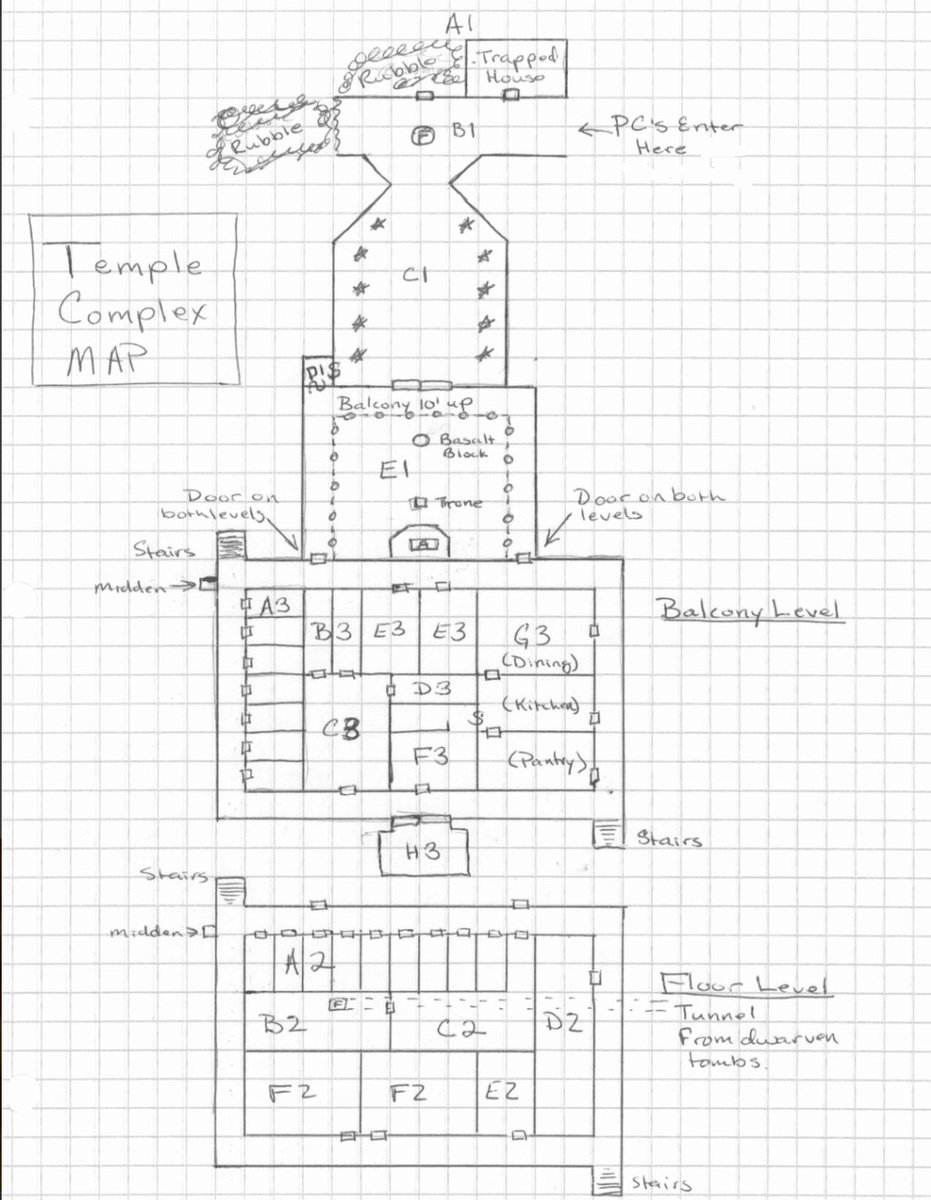 A1
Rubble
Trapped
House
Rubble
F
B1
PC's Enter
Here
Temple
Complex
MAP
C1
D1
S
Balcony 10' up
Basalt
Block
E1
Trone
A
Door on
both levels
Door on both
levels
Stairs
midden
Balcony Level
A3
B3
E3
E3
G3
(Dining)
D3
(Kitchen)
C3
S
F3
(Pantry)
H3
Stairs
Stairs
midden
A2
Floor Level
F
Tunnel
From dwarven
tombs.
B2
C2
D2
F2
F2
E2
Stairs